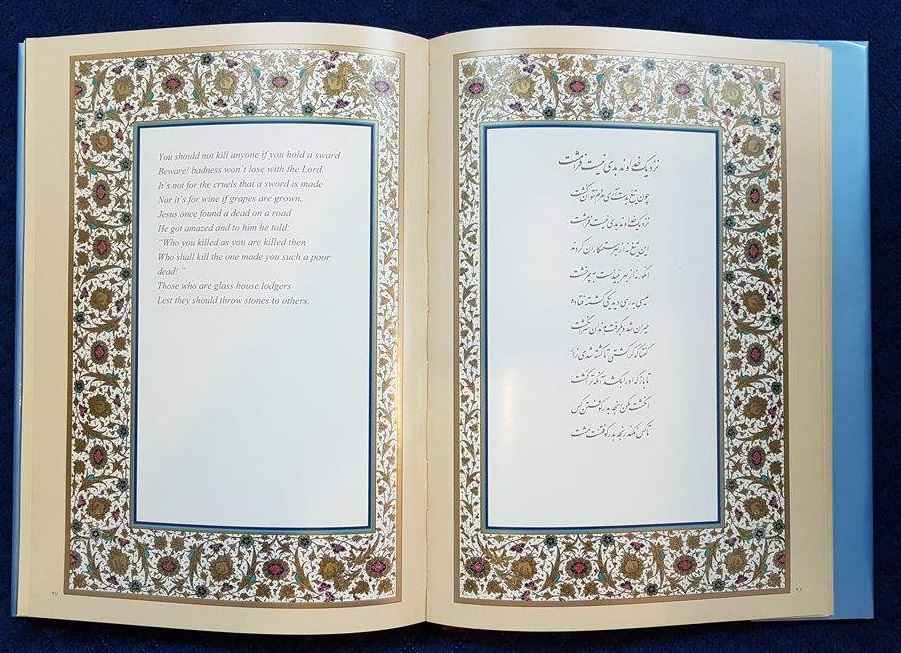 You should not kill anyone if you hold a sward
Beware! badness won't lose with the Lord.
It's not for the cruels that a sword is made
Nor it's for wine if grapes are grown.
Jesus once found a dead on a road
He got amazed and to him he told:
"Who you killed as you are killed then
Who shall kill the one made you such a poor
dead! "
Those who are glass house lodgers
Lest they should throw stones to others.
نزدیک خداوند بدی نیست فرامشت
چون تیغ بدست آری مردم نتوان کشت
نزدیک خداوند بدی نیست فرامشت
این تیغ نه از بهر ستمکاران کردند
انگور نه از بهر نبیذ است به چرخشت
عیسی به رهی دید یکی کشته فتاده
حیران شد و بگرفت به دندان سر انگشت
گفتا که کرا کشتی تا کشته شدی زار
تا باز که او را بکشد آنکه ترا کشت
انگشت مکن رنجه بدر کوفتن کس
تا کس نکند رنجه بدر کوفتنت مشت